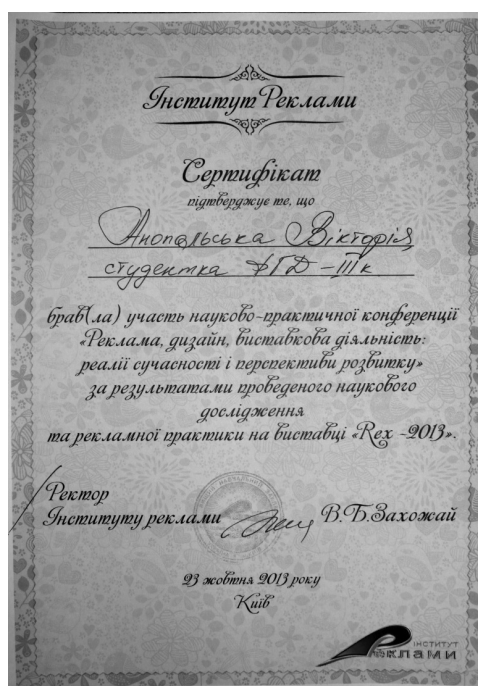 Інститут Реклами
Сертифікат
підтверджує те, що
Анопольська Вікторія
студентка ФГД-IIIк
брав(ла) участь науково-практичної конференції
«Реклама, дизайн, виставкова діяльність:
реалії сучасності і перспективи розвитку»
за результатами проведеного наукового
дослідження
та рекламної практики на виставці «Rex -2013».
Ректор
Інституту реклами
В.Б.Захожай
23 жовтня 2013 року
Київ
ІНСТИТУТ
РЕКЛАМИ